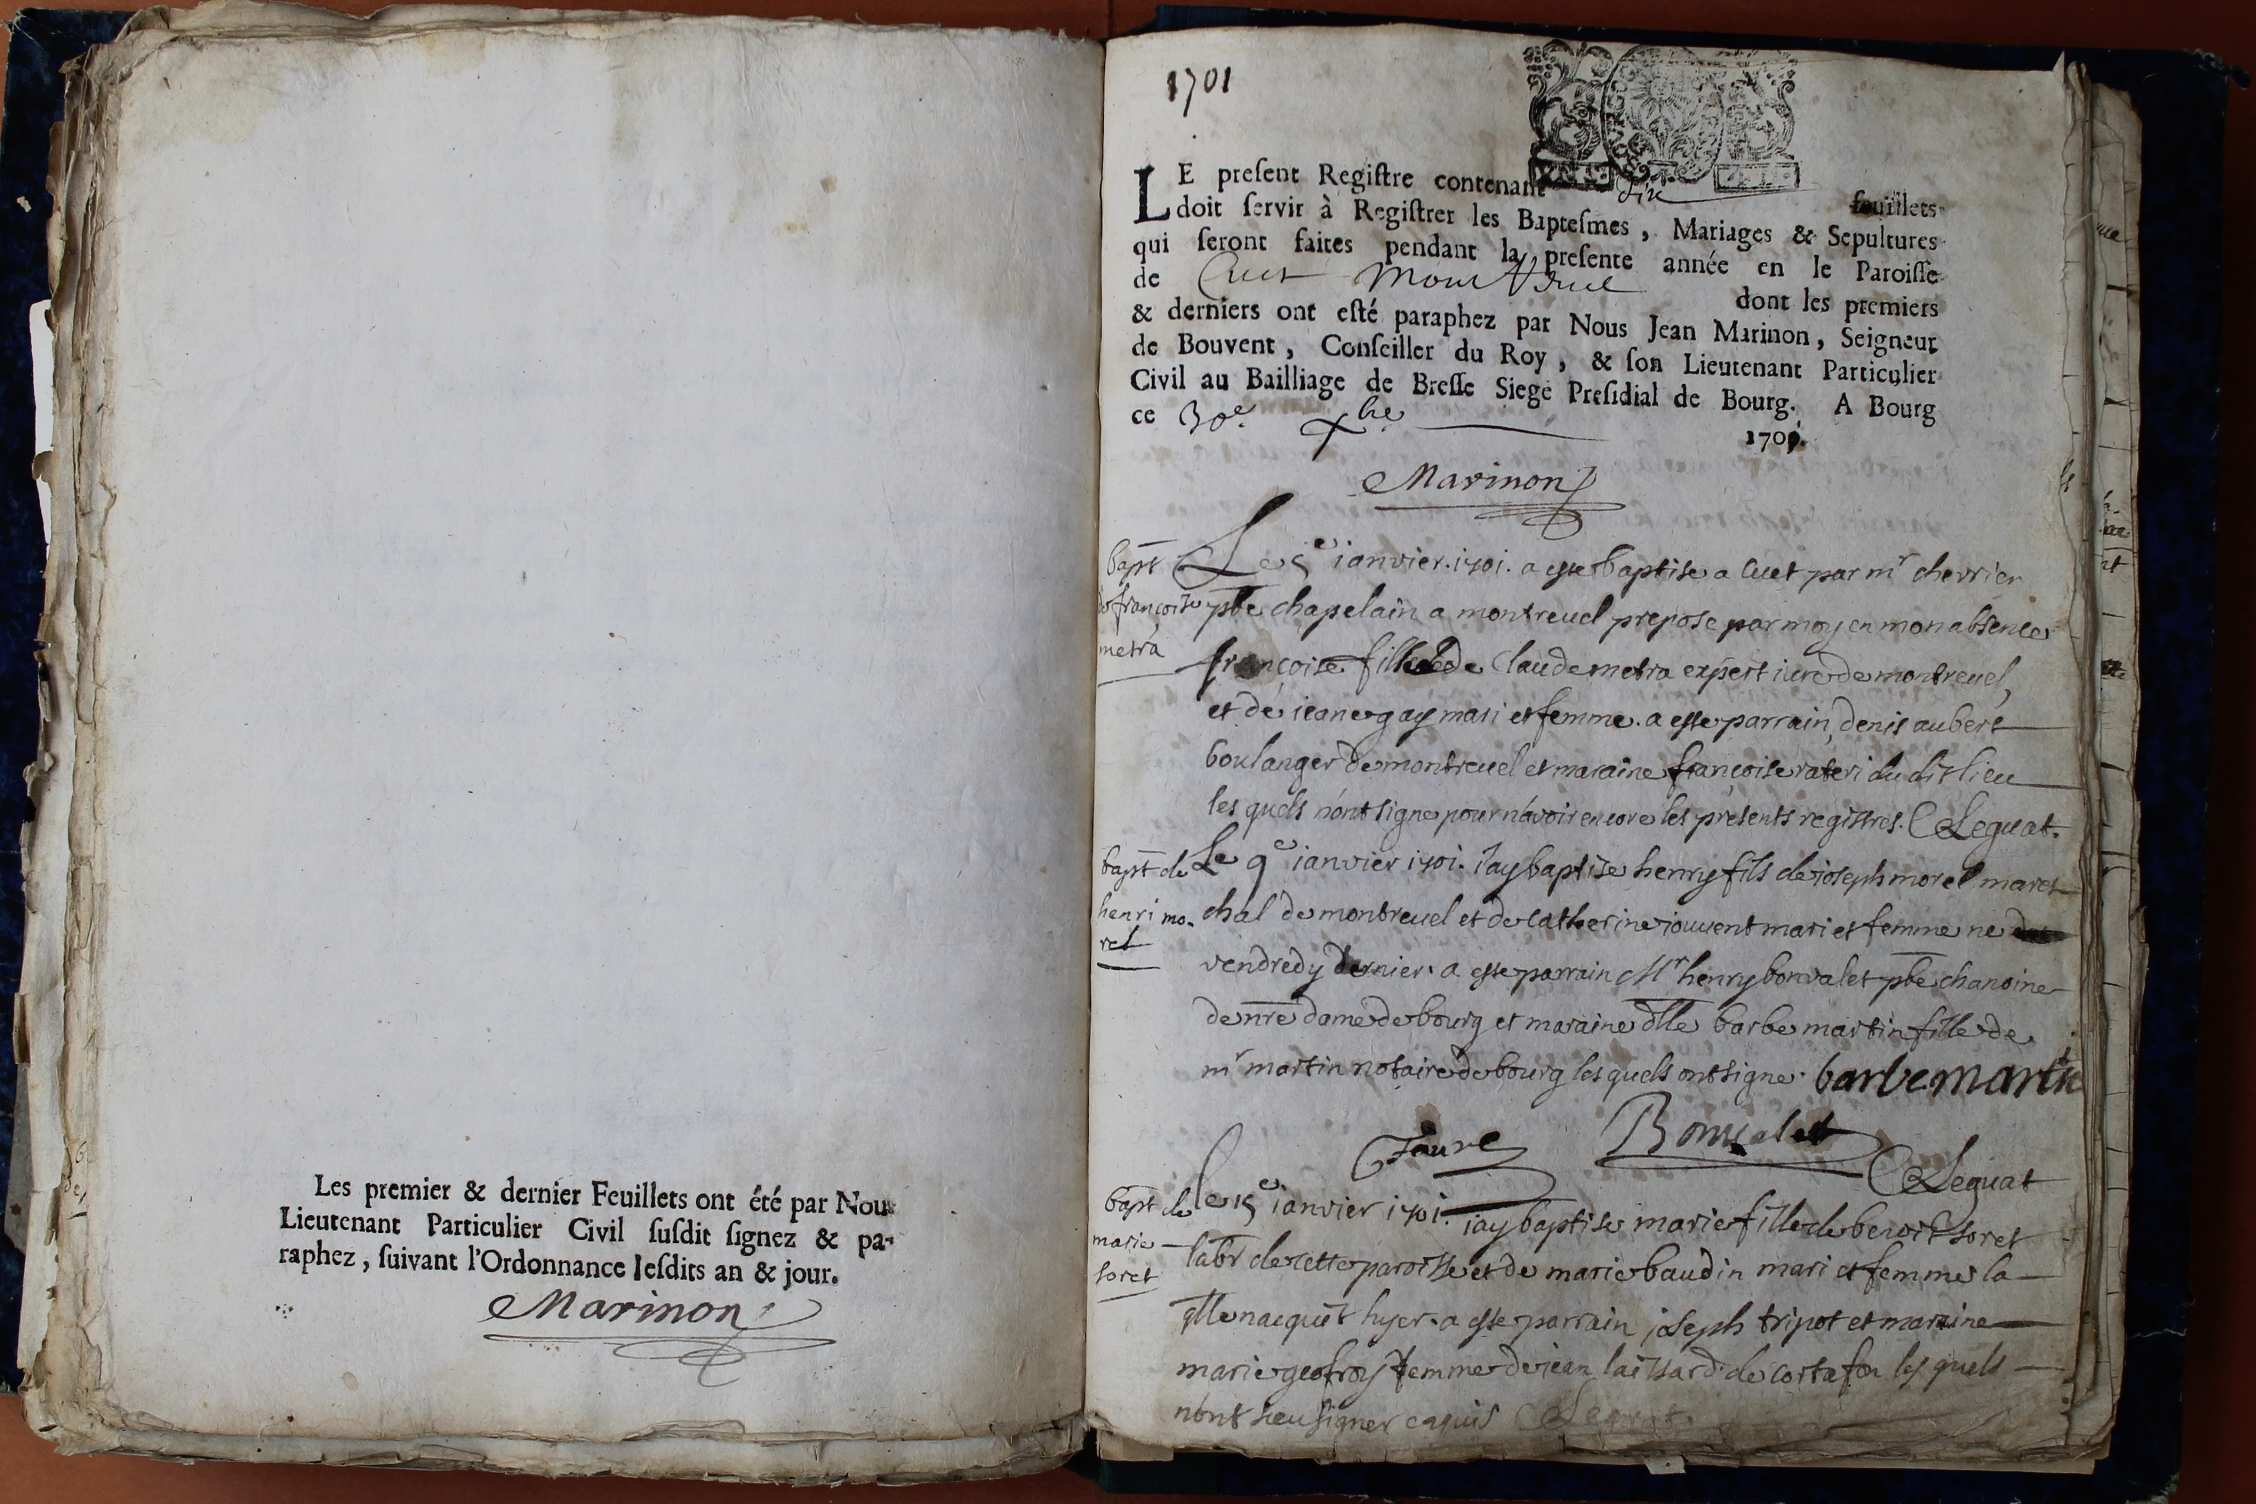 Les premier & dernier Feuillets ont été par Nous
Lieutenant Particulier Civil susdit signez & pa-
raphez, suivant l'Ordonnance lesdits an & jour.
Marinon
1701
LE present Registre contenant dix feuillets
doit servir à Registrer les Baptesmes, Mariages & Sepultures
qui seront faites pendant la presente année en le Paroisse
de Cuet Montreuel dont les premiers
& derniers ont esté paraphez par Nous Jean Marinon, Seigneur
de Bouvent, Conseiller du Roy, & son Lieutenant Particulier
Civil au Bailliage de Bresse Siege Presidial de Bourg. A Bourg
ce 30e. Xbre 170
Marinon
bapt
de françoise
metra
Le 5e ianvier. 1701. a este baptise a Cuet par mr chevrier
pbre chapelain a montreuel prepose par moy en mon absence
françoise fille de Claude metra expert iure de montreuel,
et de ieane gay mari et femme. a este parrain, denis aubert
boulanger de montreuel et maraine françoise rateri du dit lieu
les quels n'ont signe pour n'avoir encore les presents registres. Leguat.
bapt de
henri mo-
rel
Le 9e ianvier 1701. i'ay baptise henry fils de ioseph morel mares
chal de montreuel et de catherine iouvent mari et femme ne
vendredy dernier. a este parrain Mr henry bonvalet pbre chanoine
de nre dame de bourg et maraine dlle barbe martin fille de
mr martin notaire de bourg les quels ont signe. barbe martin
Faure Bonvalet
Leguat
bapt de
marie
soret
le 15e ianvier 1701. iay baptise marie fille de benoit soret
labr de cette paroisse et de marie baudin mari et femme la
qlle nacquit hyer. a este parrain ioseph tripot et maraine
marie geofroy femme de iean laissard de cortafon les quels
n'ont sceu signer enquis Leguat